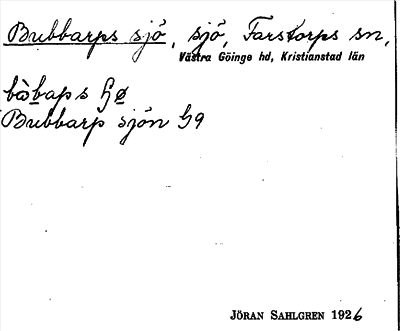 Bubbarps sjö, sjö, Farstorps sn,
Västra Göinge hd, Kristianstad län
Bubbarp sjön G9
JÖRAN SAHLGREN 1926